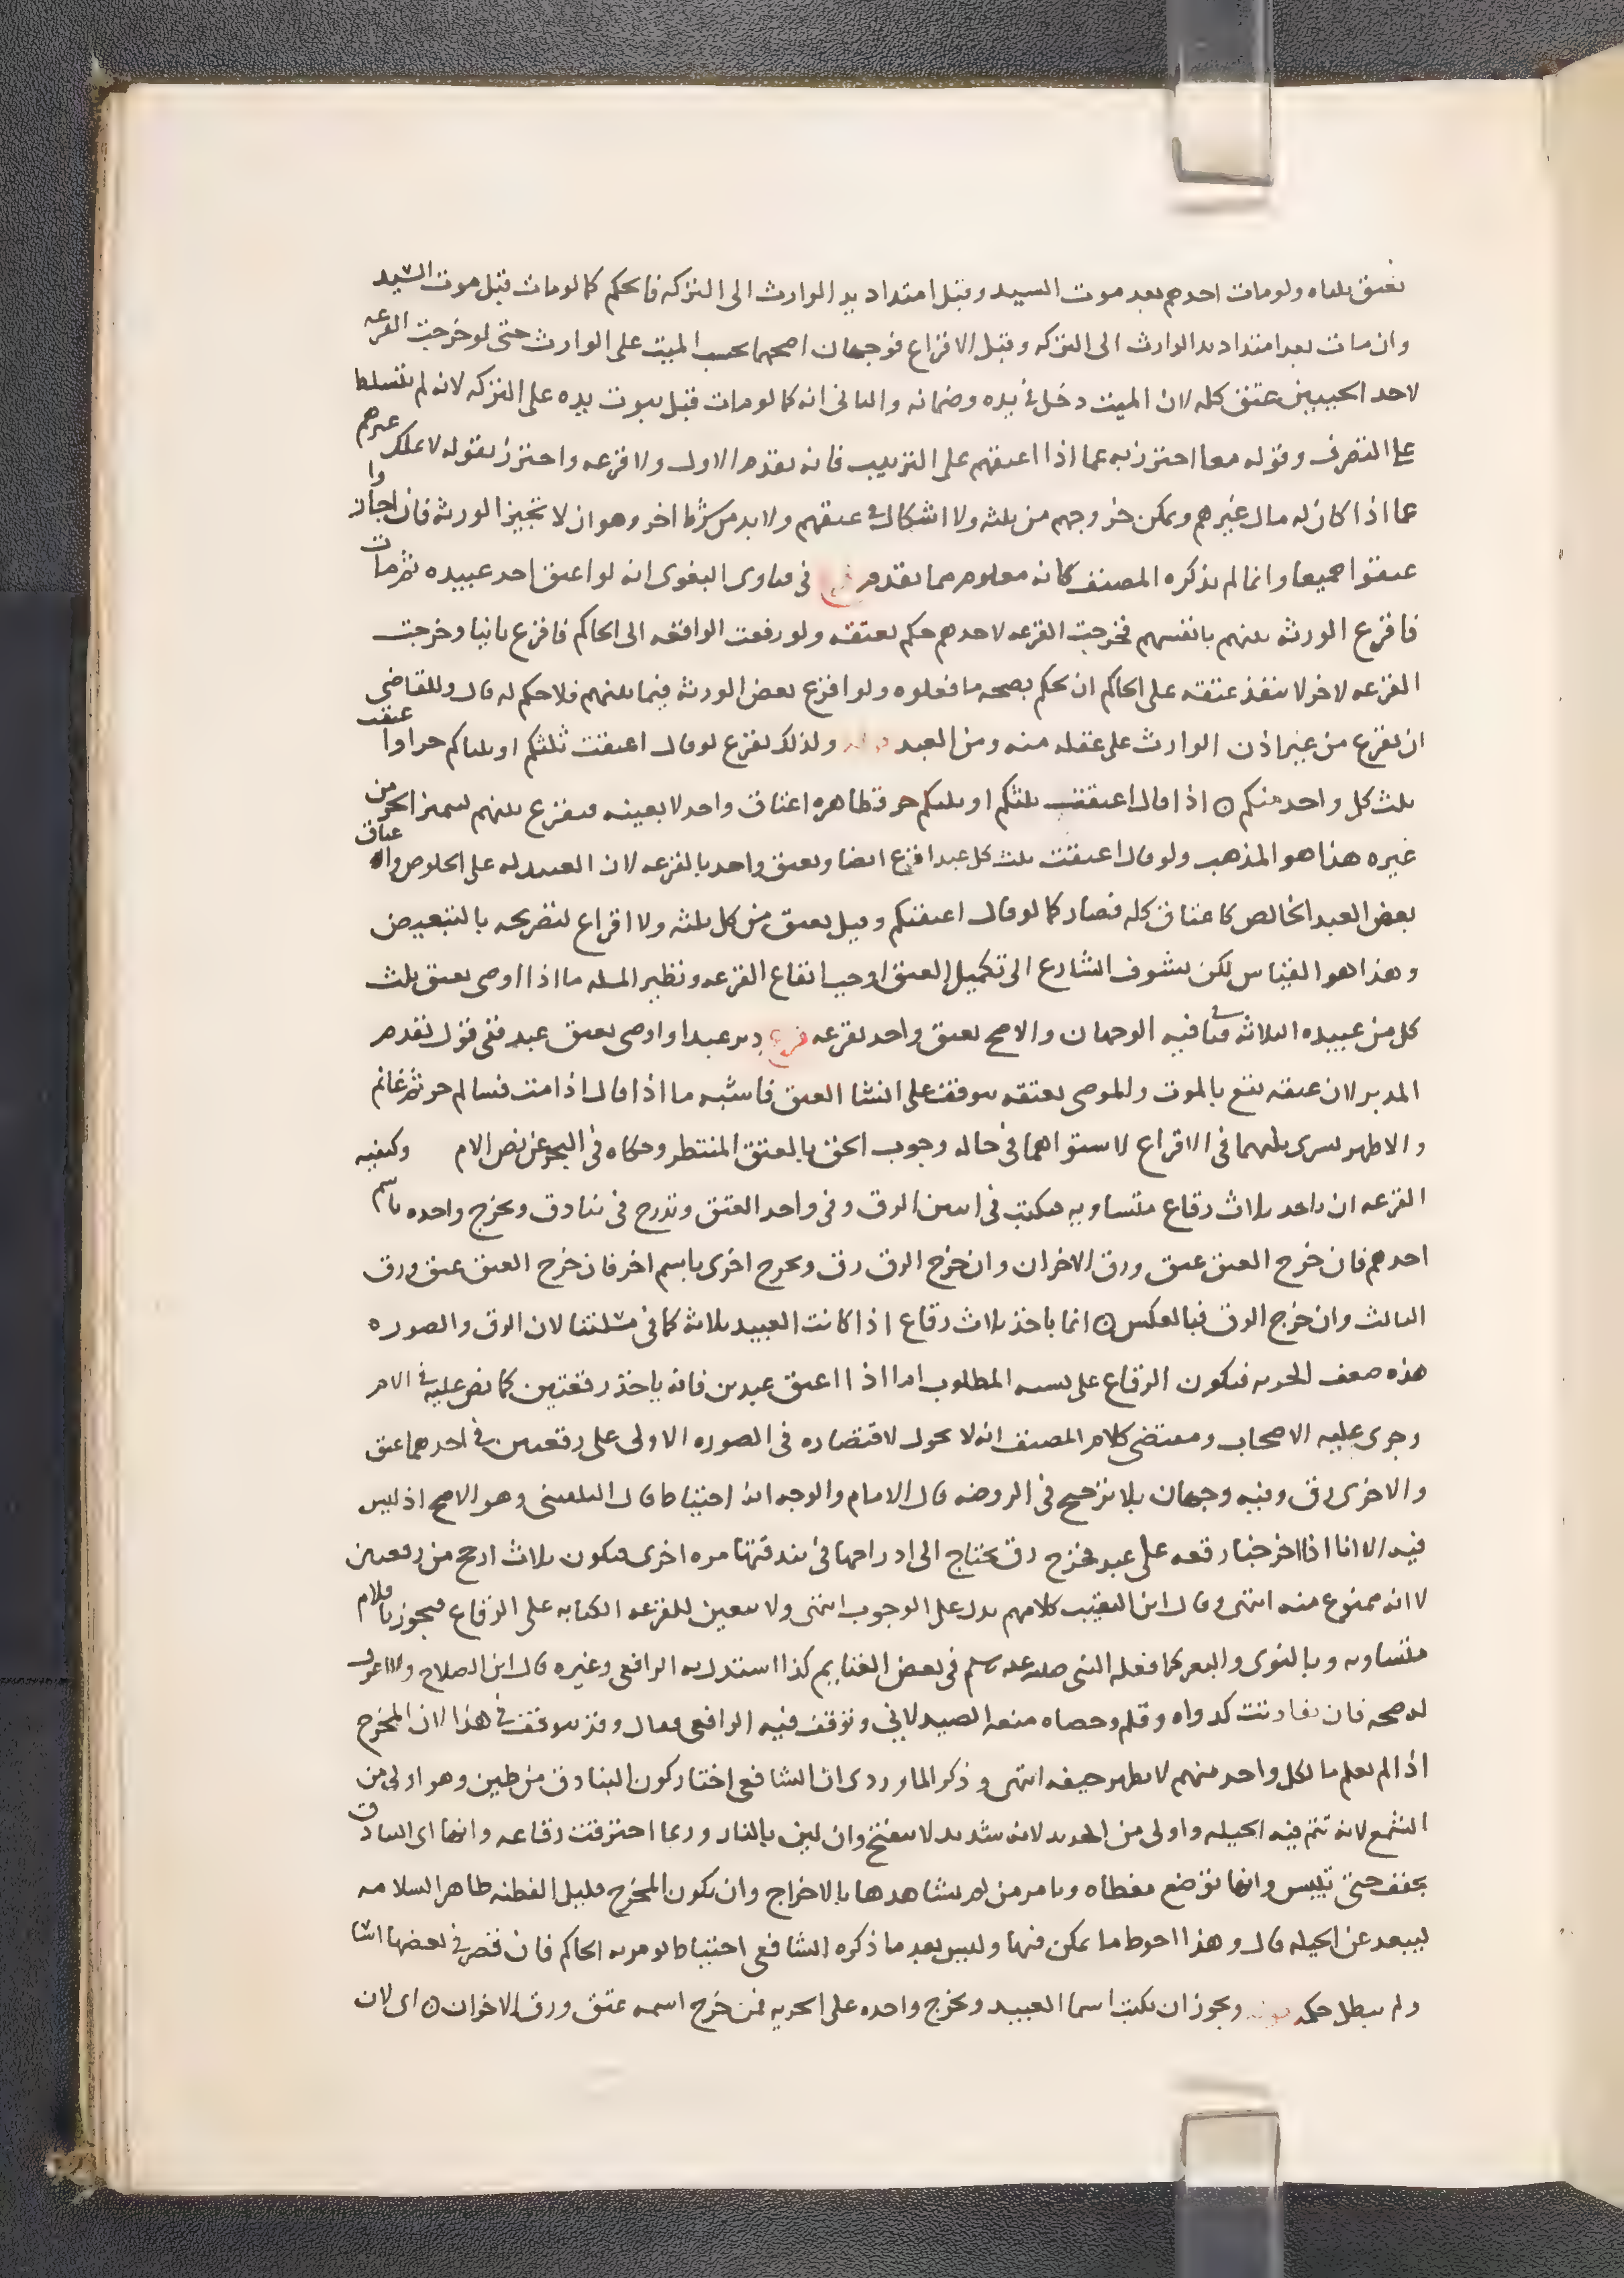 تعتق ثلثاه ولو مات احدهم بعد موت السيد وقبل امتداد يد الوارث الى التركه فالحكم كما لو مات قبل موت السيد
وان مات بعد امتداد يد الوارث الى التركه وقبل الاقراع فوجهان اصحهما يحسب الميت على الوارث حتى لو خرجت القرعه
لاحد الحيين عتق كله لان الميت دخل في يده وضمانه والثاني انه كما لو مات قبل ثبوت يده على التركه لانه لم يتسلط
على التصرف وقوله معا احترز به عما اذا اعتقهم على الترتيب فانه يقدم الاول ولا قرعه واحترز بقوله لا يملك غيرهم
عما اذا كان له مال غيرهم ويمكن خروجهم من ثلثه ولا اشكال في عتقهم ولا بد من شرط اخر وهو ان لا تجيز الورثه فان اجازوا
عتقوا جميعا وانما لم يذكره المصنف كانه معلوم مما تقدم في فتاوى البغوى انه لو اعتق احد عبيده ثم مات
فاقرع الورثه بينهم بانفسهم فخرجت القرعه لاحدهم حكم بعتقه ولو رفعت الواقعه الى الحاكم فاقرع ثانيا وخرجت
القرعه لاخر لا ينفذ عتقه على الحاكم ان يحكم بصحه ما فعلوه ولو اقرع بعض الورثه فيما بينهم فلا حكم له قال وللقاضى
ان يقرع من غير اذن الوارث على عقله منه ومن العبد ولذلك يقرع لو قال اعتقت ثلثكم او ثلثاكم حر او اعتقت
ثلث كل واحد منكم ه اذا قال اعتقت ثلثكم او ثلثكم حر فظاهره اعتاق واحد لا بعينه فيقرع بينهم ليتميز الحر من
غيره هذا هو المذهب ولو قال اعتقت ثلث كل عبد اقرع ايضا ويعتق واحد بالقرعه لان العبيد له على الخلوص واعتاق
بعض العبد الخالص كاعتاق كله فصار كما لو قال اعتقتكم وقيل يعتق من كل ثلثه ولا اقراع لتصريحه بالتبعيض
وهذا هو القياس لكن تشوف الشارع الى تكميل العتق اوجب ايقاع القرعه ونظير المسله ما اذا اوصى بعتق ثلث
كل من عبيده الثلاثه فيه الوجهان والاصح يعتق واحد بقرعه فرع دبر عبدا واوصى بعتق عبد ففى قول تقدم
المدبر لان عتقه يقع بالموت والموصى بعتقه يتوقف على انشا العتق فاشبه ما اذا قال اذا مت فسالم حر ثم غانم
والاظهر يسوى بينهما في الاقراع لاستوائهما في حاله وجوب الحق بالعتق المنتظر وحكاه في البحر عن نص الام وكيفيه
القرعه ان ياخذ ثلاث رقاع متساويه فيكتب في اثنين الرق وفي واحد العتق وتدرج في بنادق وتخرج واحده باسم
احدهم فان خرج العتق عتق ورق الاخران وان خرج الرق رق ويخرج اخرى باسم اخر فان خرج العتق عتق ورق
الثالث وان خرج الرق فبالعكس ه انما ياخذ ثلاث رقاع اذا كانت العبيد ثلاثه كما في مسلتنا لان الرق والصوره
هذه ضعف الحريه فتكون الرقاع على نسبه المطلوب اما اذا اعتق عبدين فانه ياخذ رقعتين كما نص عليه في الام
وجرى عليه الاصحاب ومقتضى كلام المصنف انه لا يجوز الاقتصاره في الصوره الاولى على رقعتين في احدهما عتق
والاخرى رق وفيه وجهان بلا ترجيح في الروضه قال الامام والوجه انه احتياط قال البلقينى وهو الاصح اذ ليس
فيه الا انا اذا اخرجنا رقعه على عبد فخرج رق يحتاج الى ادراجها في بندقتها مره اخرى فيكون ثلاث ارجح من رقعتين
لا انه ممنوع منه انتهى وقال ابن النقيب كلامهم يدل على الوجوب انتهى ولا تتعين للقرعه الكتابه على الرقاع فيجوز باقلام
متساويه وبالنوى والبعر كما فعله النبي صلى الله عليه وسلم في بعض الغنايم كذا استدل به الرافعى وغيره قال ابن الصلاح ولا اعرف
له صحه فان تفاوتت كدواه وقلم وحصاه منعه الصيدلاني وتوقف فيه الرافعى فقال وقد يتوقف في هذا لان المخرج
اذا لم يعلم ما لكل واحد منهم لا يظهر حيفه انتهى وذكر الماوردى ان الشافعى اختار كون البنادق من طين وهو اولى من
الشمع لانه تتم فيه الحيله واولى من الحديد لانه شديد لا ينفتح وان لين بالنار وربما احترقت رقاعه وانها اى البنادق
يجفف حتى تيبس وانها توضع مغطاه ويامر من لم يشاهدها بالاخراج وان يكون المخرج قليل الفطنه ظاهر السلامه
ليبعد عن الحيله قال وهذا احوط ما يمكن فيها وليس بعد ما ذكره الشافعى احتياط يومر به الحاكم فان قصر في بعضها اسا
ولم يبطل حكمه ويجوز ان يكتب اسما العبيد ويخرج واحده على الحريه فمن خرج اسمه عتق ورق الاخران ه اى لان